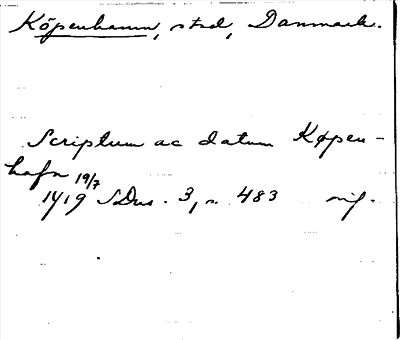 Köpenhamn, stad, Danmark.
Scriptum ac datum Køpen-
hafn 19/7
1419 SDns. 3, s. 483